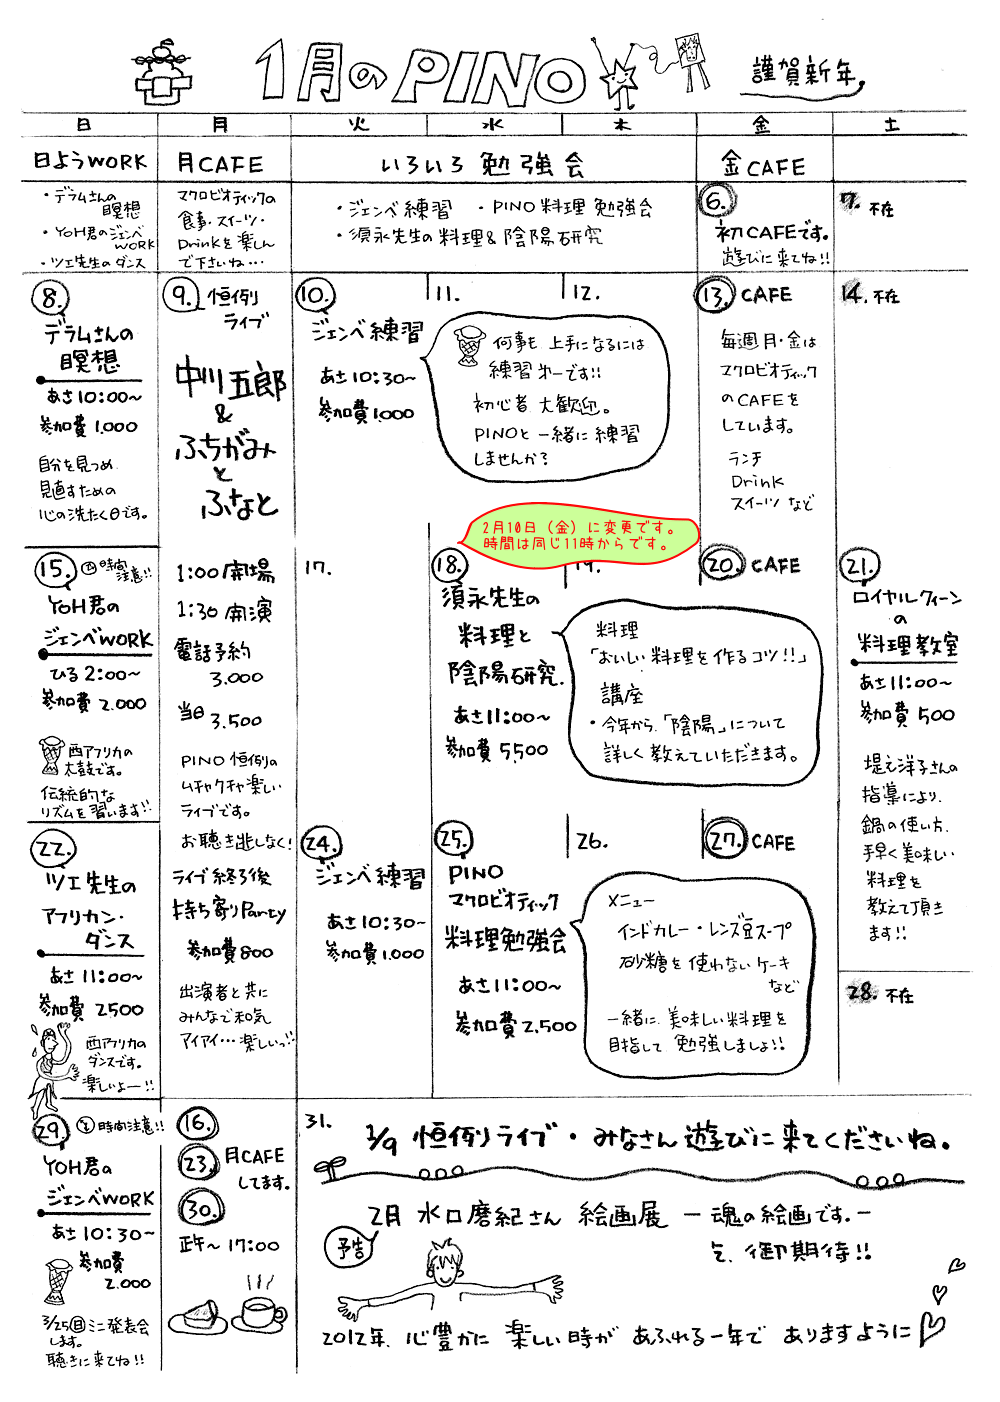 1月のPINO
謹賀新年。
日 月 火 水 木 金 土
日ようWORK
月CAFE
いろいろ勉強会
金CAFE
・デラムさんの
瞑想
・YOH君のジェンベ
WORK
・ツエ先生のダンス
マクロビオティックの
食事・スイーツ・
Drinkを楽しん
で下さいね…
・ジェンベ練習 ・PINO料理勉強会
・須永先生の料理&陰陽研究
6.
初CAFEです。
遊びに来てね!!
7. 不在
8.
デラムさんの
瞑想
あさ10:00〜
参加費1.000
自分を見つめ
見直すための
心の洗たく日です。
9. 恒例
ライブ
中川五郎
&
ふちがみ
と
ふなと
1:00開場
1:30開演
電話予約
3.000
当日
3.500
PINO恒例の
ムチャクチャ楽しい
ライブです。
お聴き逃しなく!
ライブ終了後
持ち寄りParty
参加費800
出演者と共に
みんなで和気
アイアイ…楽しいっ!!
10.
ジェンベ練習
あさ10:30〜
参加費1.000
11.
12.
何事も 上手になるには
練習が一番です!!
初心者 大歓迎。
PINOと一緒に練習
しませんか?
13. CAFE
毎週月・金は
マクロビオティック
のCAFEを
しています。
ランチ
Drink
スイーツ など
14. 不在
15. 時間
注意!!
YOH君の
ジェンベWORK
ひる2:00〜
参加費 2.000
西アフリカの
太鼓です。
伝統的な
リズムを習います!!
17.
2月10日(金)に変更です。
時間は同じ11時からです。
18.
須永先生の
料理と
陰陽研究.
あさ11:00〜
参加費5,500
19.
料理
「おいしい料理を作るコツ!!」
講座
・今年から「陰陽」について
詳しく教えていただきます。
20. CAFE
21.
ロイヤルクィーン
の
料理教室
あさ11:00〜
参加費 500
堤え洋子さんの
指導により、
鍋の使い方、
手早く美味しい
料理を
教えて頂き
ます!!
22.
ツエ先生の
アフリカン・
ダンス
あさ 11:00〜
参加費 2500
西アフリカの
ダンスです。
楽しいよー!!
24.
ジェンベ練習
あさ10:30〜
参加費1.000
25.
PINO
マクロビオティック
料理勉強会
あさ11:00〜
参加費2,500
26.
メニュー
インドカレー・レンズ豆スープ
砂糖を使わないケーキ
など
一緒に、美味しい料理を
目指して 勉強しましょ!!
27. CAFE
28. 不在
29. 時間注意!!
YOH君の
ジェンベWORK
あさ10:30〜
参加費
2.000
3/25(日)ミニ発表会
します。
聴きに来てね!!
16.
23. 月CAFE
してます。
30.
正午〜17:00
31.
1/9 恒例ライブ・みなさん遊びに来てくださいね。
予告
2月 水口磨紀さん 絵画展 ー魂の絵画です.ー
乞、御期待!!
2012年、心豊かに 楽しい時が あふれる一年で ありますように